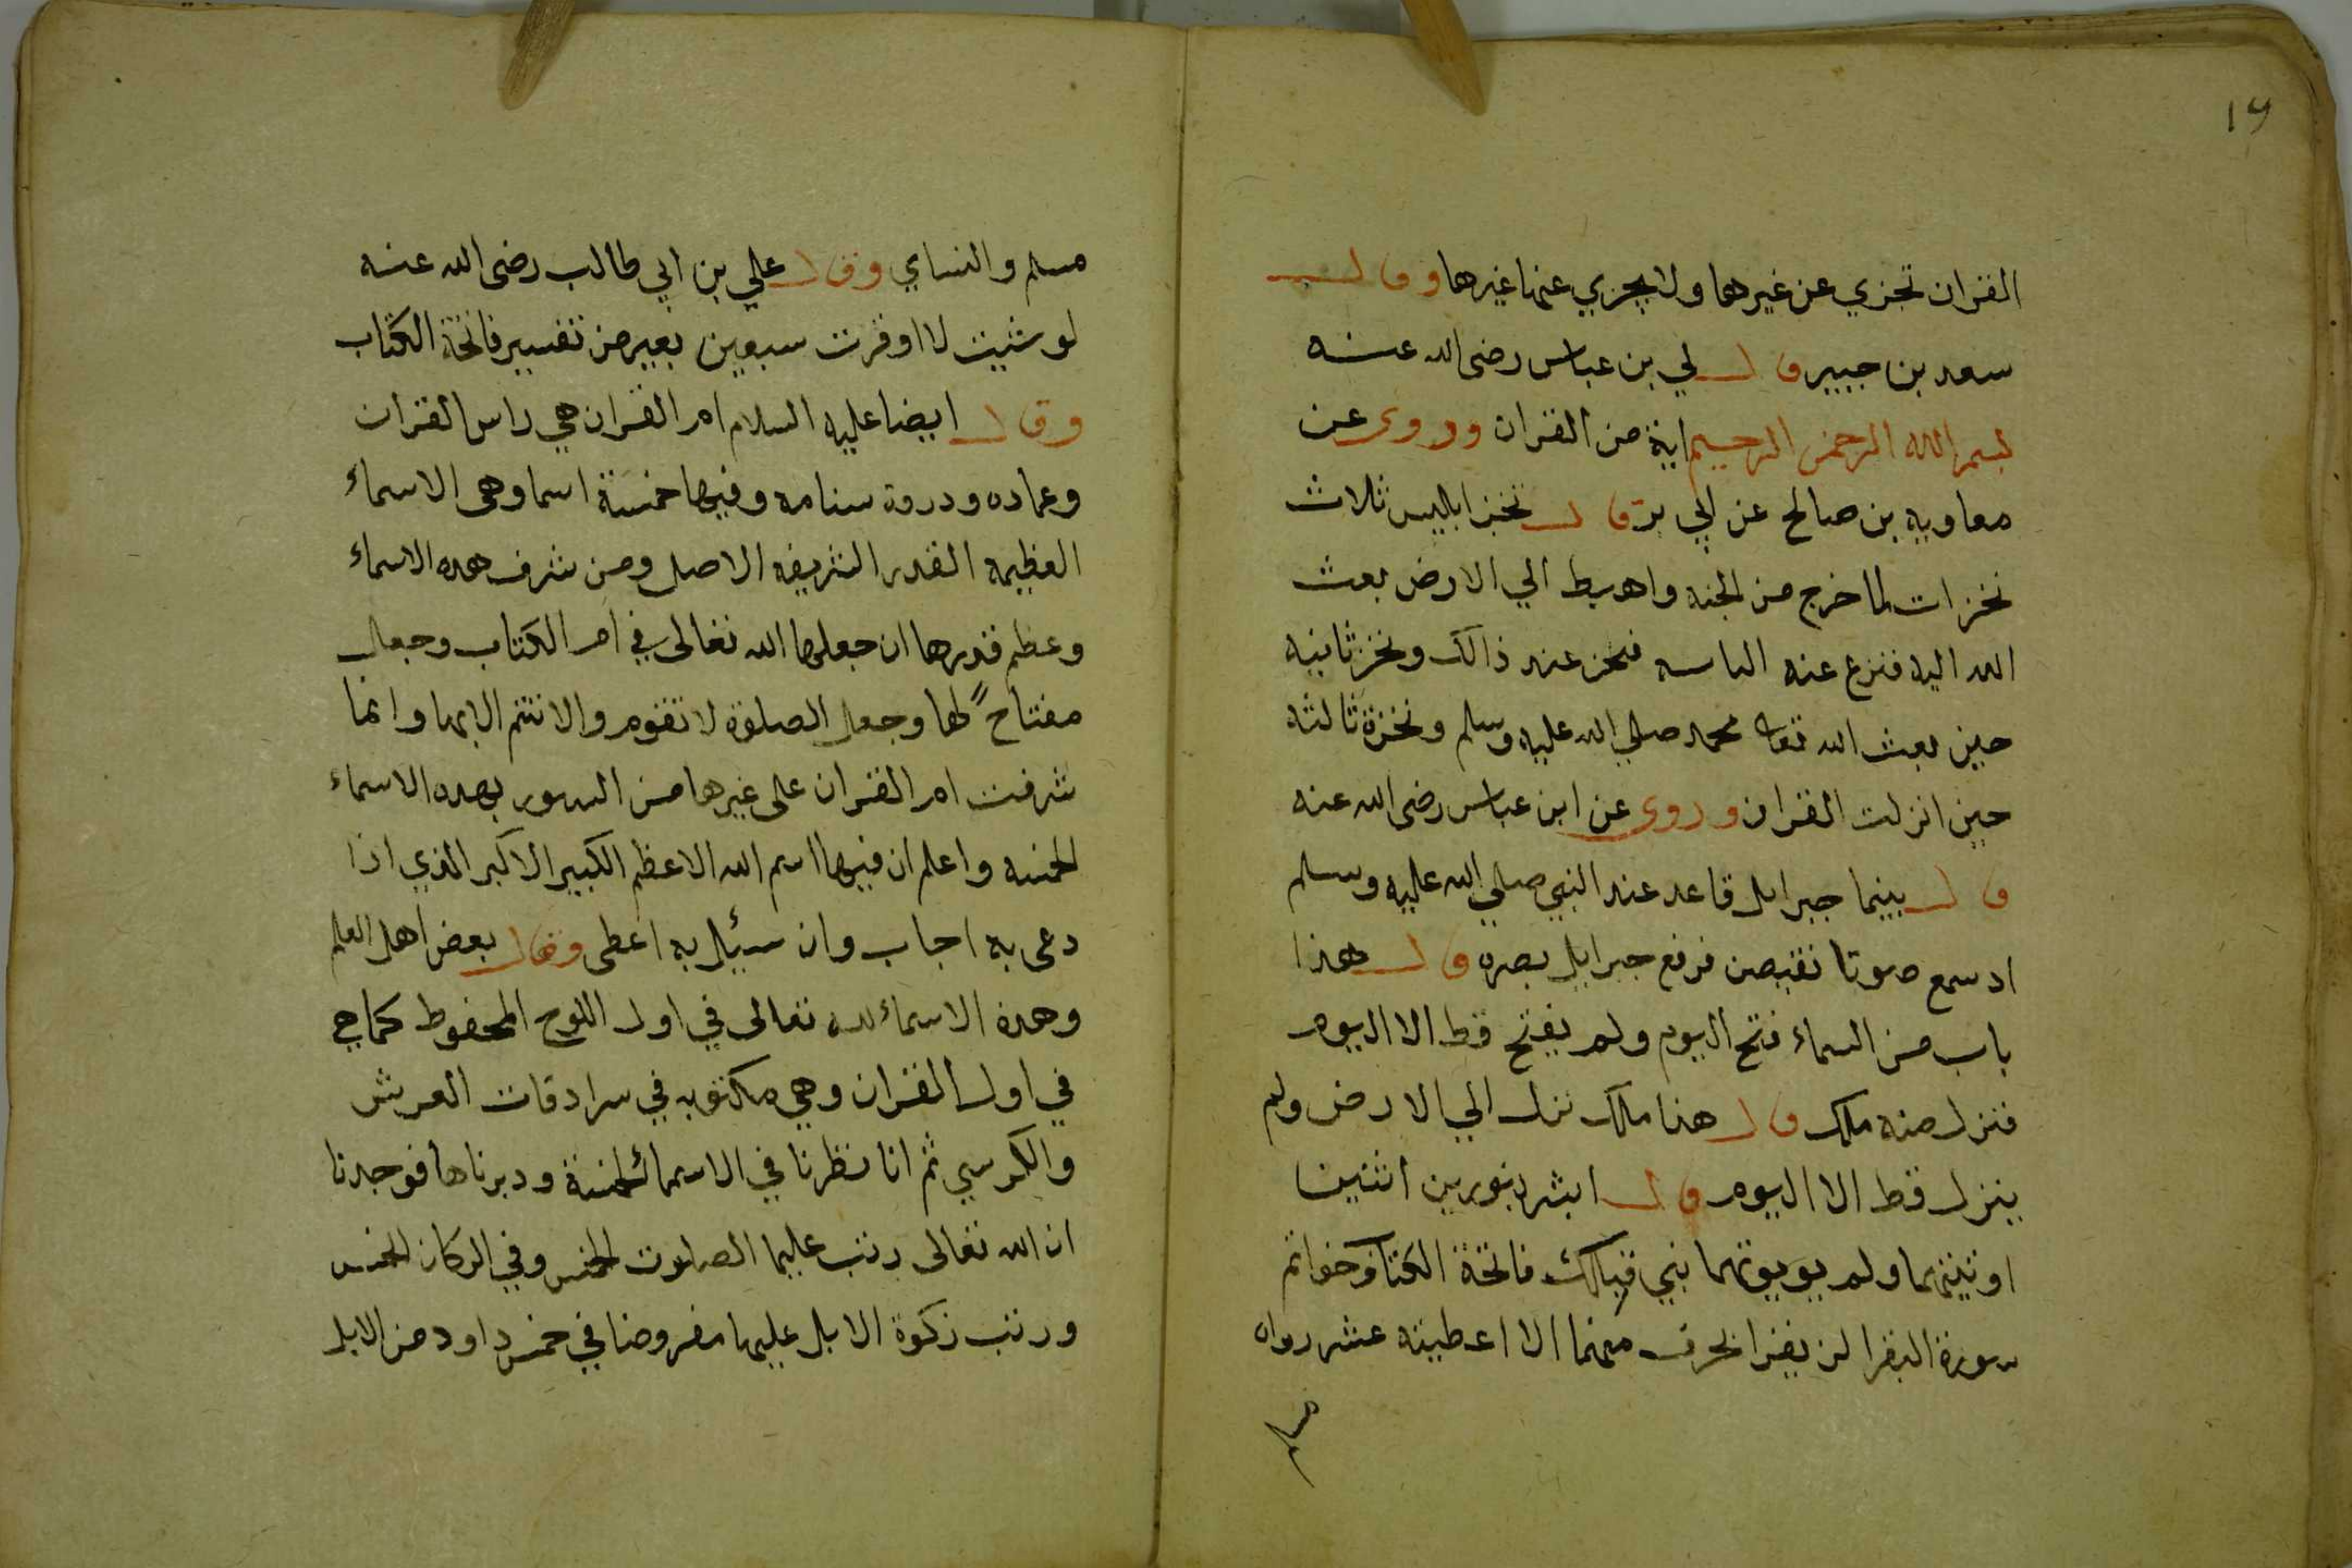 ١٩
القران تجزي عن غيرها ولا يجزي عنها غيرها وقال
سعد بن جبير قال لي بن عباس رضى الله عنه
بسم الله الرحمن الرحيم اية من القران وروى عن
معاويه بن صالح عن ابي قال نخز ابليس ثلاث
نخزات لما خرج من الجنه واهبط الي الارض بعث
الله اليه فنزع عنه الباسه فنخز عند ذالك ونخز ثانيه
حين بعث الله تعا محمد صلي الله عليه وسلم ونخزة ثالثه
حين انزلت القران وروى عن ابن عباس رضى الله عنه
قال بينما جبرايل قاعد عند النبي صلي الله عليه وسلم
اد سمع صوتا نقبصن فرفع جبرايل بصره قال هذا
باب من السماء فتح اليوم ولم يفتح قط الا اليوم
فنزل منه ملك قال هذا ملك نزل الي الارض ولم
ينزل قط الا اليوم قال ابشر بنورين اثنين
اوتيتهما ولم يويوتهما نبي قبلك فاتحة الكتاب وخواتم
سورة البقرا لن يقرا بحرف منهما الا اعطيته عشر رواه
مسلم
مسلم والنساي وقال علي بن ابي طالب رضى الله عنه
لو شيت لا اوقرت سبعين بعير من تفسير فاتحة الكتاب
وقال ايضا عليه السلام ام القران هي راس القران
وعماده ودروة سنامه وفيها خمسة اسما وهى الاسماء
العظيمه القدر الشريفه الاصل ومن شرف هده الاسماء
وعظم قدرها ان جعلها الله تعالى في ام الكتاب وجعل
مفتاحً لها وجعل الصلوة لا تقوم والا تتم الا بها وانما
شرفت ام القران على غيرها من السور بهده الاسماء
الخمسه واعلم ان فيها اسم الله الاعظم الكبير الاكبر الذي اذا
دعى به اجاب وان سئيل به اعطى وقال بعض اهل العلم
وهدة الاسماء لله تعالى في اول اللوح المحفوظ كما هي
في اول القران وهي مكتوبه في سرادقات العرش
والكرسي ثم انا نظرنا في الاسماء الخمسة ودبرناها فوجدنا
ان الله تعالى رتب عليها الصلوت الخمس وفي الركان الخمس
ورتب زكوة الابل عليها مفروضا في خمس داود من الابل